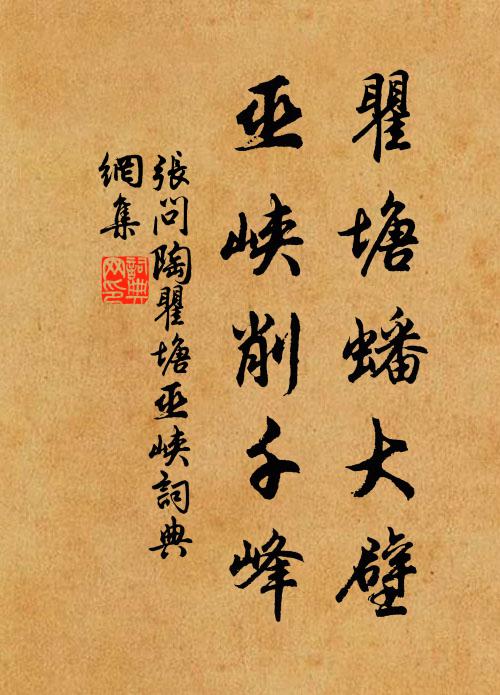 瞿塘蟠大壁
巫峽削千峰
張問陶瞿塘巫峽詞典
網集
詞典網印